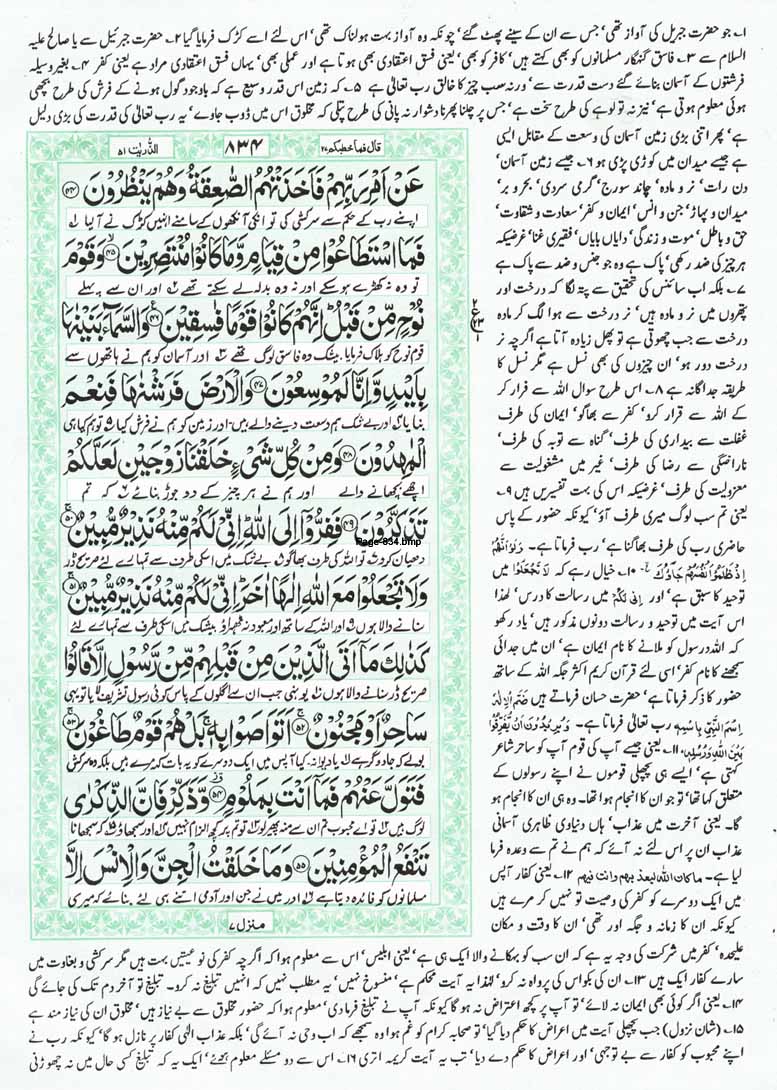 ۱۔ جو حضرت جبریل کی آواز تھی، جس سے ان کے سینے پھٹ گئے، چونکہ وہ آواز بہت ہولناک تھی، اس لئے اسے کڑک فرمایا گیا ۲۔ حضرت جبرئیل سے یا صالح علیہ
السلام سے ۳۔ فاسق گنہگار مسلمانوں کو بھی کہتے ہیں، کافر کو بھی، یعنی فسق اعتقادی بھی ہوتا ہے اور عملی بھی، یہاں فسق اعتقادی مراد ہے یعنی کفر ۴۔ بغیر وسیلہ
فرشتوں کے آسمان بنائے گئے دست قدرت سے، ورنہ سب چیز کا خالق رب تعالیٰ ہے ۵۔ کہ زمین اس قدر وسیع ہے کہ باوجود گول ہونے کے فرش کی طرح بچھی
ہوئی معلوم ہوتی ہے، نیز نہ تو لوہے کی طرح سخت ہے، جس پر چلنا پھرنا دشوار نہ پانی کی طرح پتلی کہ مخلوق اس میں ڈوب جاوے، یہ رب تعالیٰ کی قدرت کی بڑی دلیل
ہے، پھر اتنی بڑی زمین آسمان کی وسعت کے مقابل ایسی
ہے جیسے میدان میں کوڑی پڑی ہو ۶۔ جیسے زمین آسمان،
دن رات، نر و مادہ، چاند سورج، گرمی سردی، بحر و بر،
میدان و پہاڑ، جن و انس، ایمان و کفر، سعادت و شقاوت،
حق و باطل، موت و زندگی، دایاں بایاں، فقیری غنا، غرضیکہ
ہر چیز کی ضد رکھی، پاک ہے وہ جو جنس و ضد سے پاک ہے
۷۔ بلکہ اب سائنس کی تحقیق سے پتہ لگا کہ درخت اور
پتھروں میں نر و مادہ ہیں، نر درخت سے ہوا لگ کر مادہ
درخت سے جب چھوتی ہے تو پھل زیادہ آتا ہے اگرچہ نر
درخت دور ہو، ان چیزوں کی بھی نسل ہے مگر نسل کا
طریقہ جداگانہ ہے ۸۔ اس طرح سوال اللہ سے فرار کر
کے اللہ سے قرار کرو، کفر سے بھاگو، ایمان کی طرف
غفلت سے بیداری کی طرف، گناہ سے توبہ کی طرف،
ناراضگی سے رضا کی طرف، غیر میں مشغولیت سے
معزولیت کی طرف، غرضیکہ اس کی بہت تفسیریں ہیں ۹۔
یعنی تم سب لوگ میری طرف آؤ، کیونکہ حضور کے پاس
حاضری رب کی طرف بھاگنا ہے، رب فرماتا ہے۔ وَلَوْ اَنَّهُمْ
اِذْ ظَّلَمُوْۤا اَنْفُسَهُمْ جَآءُوْكَ ۱۰۔ خیال رہے کہ لَا تَجْعَلُوْا میں
توحید کا سبق ہے، اور اِنِّیْ لَكُمْ میں رسالت کا درس، لہٰذا
اس آیت میں توحید و رسالت دونوں مذکور ہیں، یاد رکھو
کہ اللہ رسول کو ملانے کا نام ایمان ہے، ان میں جدائی
سمجھنے کا نام کفر، اسی لئے قرآن کریم اکثر جگہ اللہ کے ساتھ
حضور کا ذکر فرماتا ہے، حضرت حسان فرماتے ہیں ضَمَّ الْاِلٰهُ
اِسْمَ النَّبِیِّ بِاِسْمِهٖ رب تعالیٰ فرماتا ہے۔ وَیُرِیْدُوْنَ اَنْ یُّفَرِّقُوْا
بَیْنَ اللهِ وَرُسُلِهٖ ۱۱۔ یعنی جیسے آپ کی قوم آپ کو ساحر شاعر
کہتی ہے، ایسے ہی پچھلی قوموں نے اپنے رسولوں کے
متعلق کہا تھا، تو جو ان کا انجام ہوا تھا۔ وہ ہی ان کا انجام ہو
گا۔ یعنی آخرت میں عذاب، ہاں دنیاوی ظاہری آسمانی
عذاب ان پر اس لئے نہ آئے کہ ہم نے تم سے وعدہ فرما
لیا ہے۔ ماکان اللہ لیعذبہم وانت فیہم ۱۲۔ یعنی کفار آپس
میں ایک دوسرے کو کفر کی وصیت تو نہیں کر مرے ہیں
کیونکہ ان کا زمانہ و جگہ اور تھی، ان کا وقت و مکان
قال فما خطبکم ۲۷
۸۳۴
الذّٰریٰت ۵۱
عَنْ اَمْرِ رَبِّهِمْ فَاَخَذَتْهُمُ الصّٰعِقَةُ وَهُمْ یَنْظُرُوْنَ ﴿۴۴﴾
اپنے رب کے حکم سے سرکشی کی تو انکی آنکھوں کے سامنے انہیں کڑک نے آلیا ۱
فَمَا اسْتَطَاعُوْا مِنْ قِیَامٍ وَّمَا كَانُوْا مُنْتَصِرِیْنَ ﴿۴۵﴾ وَقَوْمَ
تو وہ نہ کھڑے ہو سکے اور نہ وہ بدلہ لے سکتے تھے ۲ اور ان سے پہلے
نُوْحٍ مِّنْ قَبْلُ اِنَّهُمْ كَانُوْا قَوْمًا فٰسِقِیْنَ ﴿۴۶﴾ وَالسَّمَآءَ بَنَیْنٰهَا
قوم نوح کو ہلاک فرمایا، بیشک وہ فاسق لوگ تھے ۳ اور آسمان کو ہم نے ہاتھوں سے
بِاَیْىدٍ وَّاِنَّا لَمُوْسِعُوْنَ ﴿۴۷﴾ وَالْاَرْضَ فَرَشْنٰهَا فَنِعْمَ
بنایا ۴ اور بے شک ہم وسعت دینے والے ہیں۔ اور زمین کو ہم نے فرش کیا ۵ تو ہم کیا ہی
الْمٰهِدُوْنَ ﴿۴۸﴾ وَمِنْ كُلِّ شَیْءٍ خَلَقْنَا زَوْجَیْنِ لَعَلَّكُمْ
اچھے بچھانے والے اور ہم نے ہر چیز کے دو جوڑ بنائے ۶ کہ تم
تَذَكَّرُوْنَ ﴿۴۹﴾ فَفِرُّوْۤا اِلَی اللهِ اِنِّیْ لَكُمْ مِّنْهُ نَذِیْرٌ مُّبِیْنٌ ﴿۵۰﴾
Page-834.bmp
دھیان کرو ۷ تو اللہ کی طرف بھاگو ۸ بے شک میں اسکی طرف سے تمہارے لئے صریح ڈر
وَلَا تَجْعَلُوْا مَعَ اللهِ اِلٰهًا اٰخَرَ اِنِّیْ لَكُمْ مِّنْهُ نَذِیْرٌ مُّبِیْنٌ ﴿۵۱﴾
سنانے والا ہوں ۹ اور اللہ کے ساتھ اور معبود نہ ٹھہراؤ بیشک میں اسکی طرف سے تمہارے لئے
كَذٰلِكَ مَاۤ اَتَی الَّذِیْنَ مِنْ قَبْلِهِمْ مِّنْ رَّسُوْلٍ اِلَّا قَالُوْا
صریح ڈر سنانے والا ہوں ۱۰ یونہی جب ان سے اگلوں کے پاس کوئی رسول تشریف لایا تو یہی
سَاحِرٌ اَوْ مَجْنُوْنٌ ﴿۵۲﴾ اَتَوَاصَوْا بِهٖ بَلْ هُمْ قَوْمٌ طَاغُوْنَ ﴿۵۳﴾
بولے کہ جادوگر ہے ۱۱ یا دیوانہ، کیا آپس میں ایک دوسرے کو یہ بات کہہ مرے ہیں بلکہ وہ سرکش
فَتَوَلَّ عَنْهُمْ فَمَاۤ اَنْتَ بِمَلُوْمٍ ﴿۵۴﴾ وَّذَكِّرْ فَاِنَّ الذِّكْرٰی
لوگ ہیں ۱۲ تو اے محبوب تم ان سے منہ پھیر لو ۱۳ تو تم پر کچھ الزام نہیں ۱۴ اور سمجھاؤ ۱۵ کہ سمجھانا
تَنْفَعُ الْمُؤْمِنِیْنَ ﴿۵۵﴾ وَمَا خَلَقْتُ الْجِنَّ وَالْاِنْسَ اِلَّا
مسلمانوں کو فائدہ دیتا ہے ۱۶ اور میں نے جن اور آدمی اتنے ہی لئے بنائے کہ میری
منزل ۷
علیحدہ، کفر میں شرکت کی وجہ یہ ہے کہ ان سب کو بہکانے والا ایک ہی ہے، یعنی ابلیس، اس سے معلوم ہوا کہ اگرچہ کفر کی نوعیتیں بہت ہیں مگر سرکشی و بغاوت میں
سارے کفار ایک ہیں ۱۳۔ ان کی بکواس کی پرواہ نہ کرو، لہٰذا یہ آیت محکم ہے، منسوخ نہیں، یہ مطلب نہیں کہ انہیں تبلیغ نہ کرو۔ تبلیغ تو آخر دم تک کی جائے گی
۱۴۔ یعنی اگر کوئی بھی ایمان نہ لائے، تو آپ پر کچھ اعتراض نہ ہو گا کیونکہ آپ نے تبلیغ فرمادی، معلوم ہوا کہ حضور مخلوق سے بے نیاز ہیں، مخلوق ان کی نیاز مند ہے
۱۵۔ (شان نزول) جب پچھلی آیت میں اعراض کا حکم دیا گیا، تو صحابہ کرام کو غم ہوا وہ سمجھے کہ اب وحی نہ آئے گی، بلکہ عذاب الٰہی کفار پر نازل ہو گا، کیونکہ رب نے
اپنے محبوب کو کفار سے بے توجہی، اور اعراض کا حکم دے دیا، تب یہ آیت کریمہ اتری ۱۶۔ اس سے دو مسئلے معلوم ہوئے، ایک یہ کہ تبلیغ کسی حال میں نہ چھوڑنی